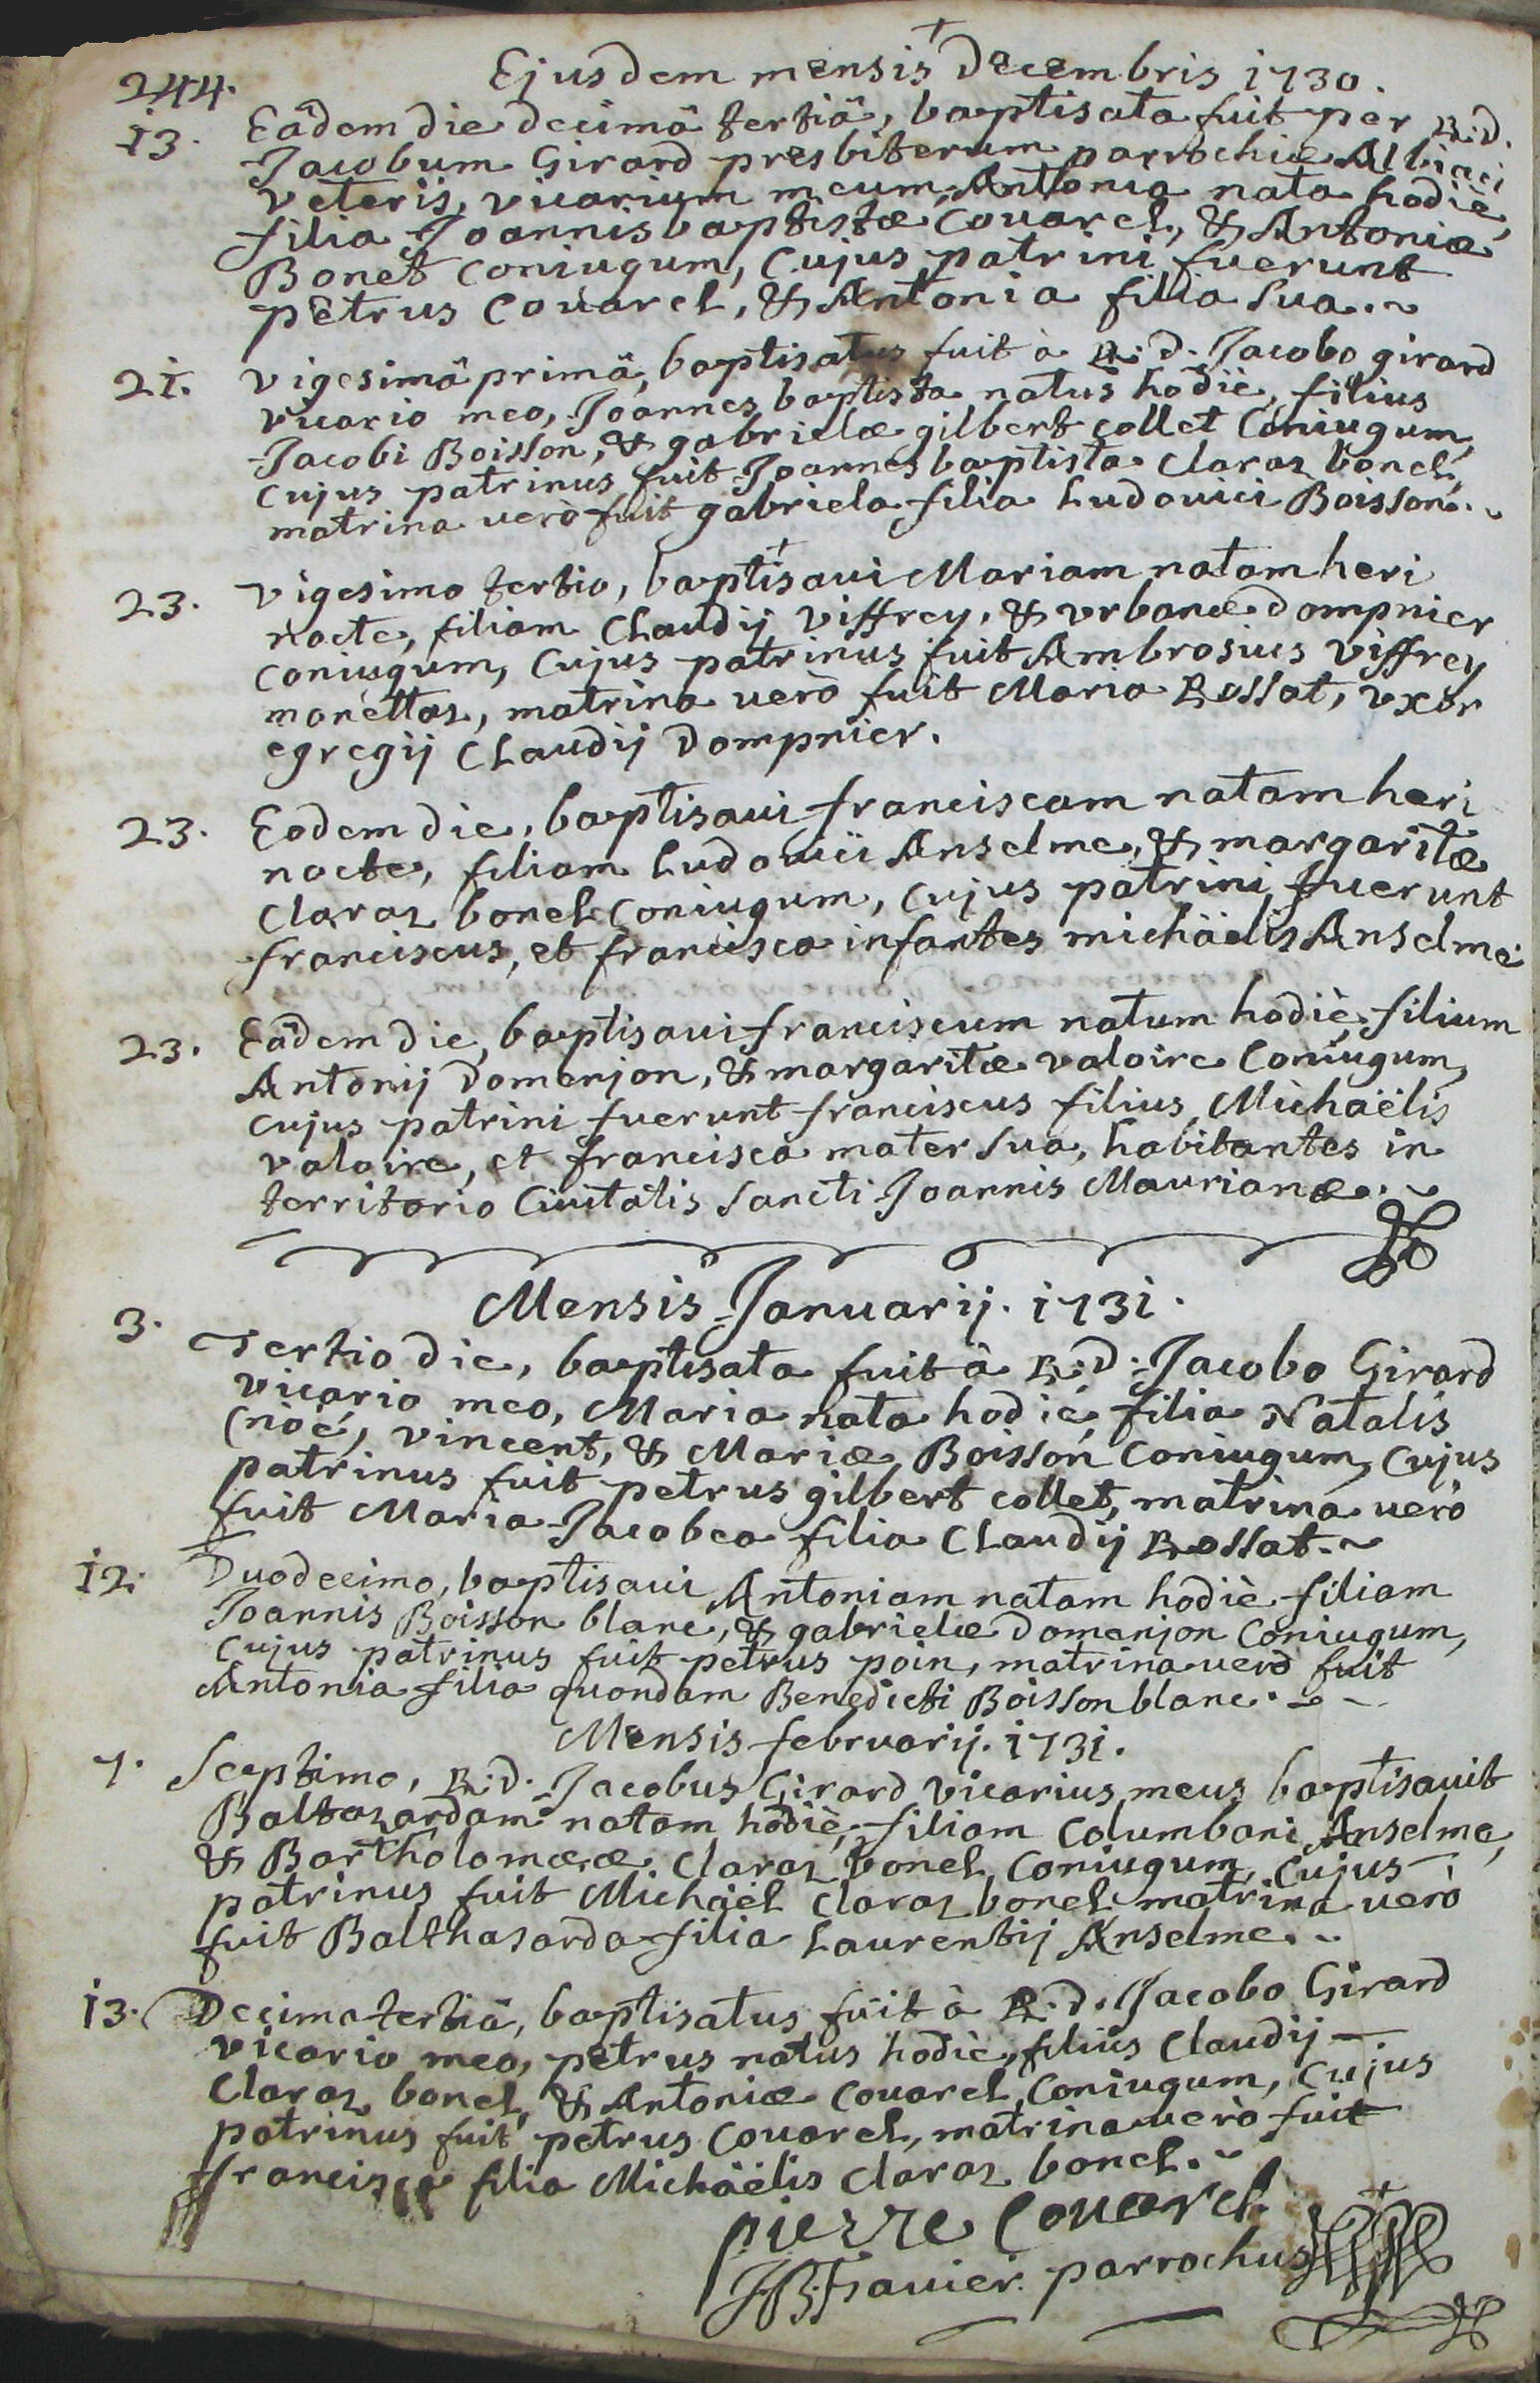 244.
Ejusdem mensis Decembris 1730.
13. Eâdem die decimâ tertiâ, baptisata fuit per R:d.
Jacobum Girard presbiterum parrochiæ Albiaci
veteris, vicarium meum, Antonia nata hodiè,
filia Joannisbaptistæ Couarel, & Antoniæ
Bonet coniugum, cujus patrini fuerunt
petrus Couarel, & Antonia filia sua.~
21. vigesimâ primâ, baptisatus fuit à R:d. Jacobo girard
vicario meo, Joannes baptista natus hodiè, filius
Jacobi Boisson, & gabrielæ gilbert collet coniugum,
cujus patrinus fuit Joannes baptista claraz bonel,
matrina verò fuit gabriela filia Ludovici Boisson.~
23. vigesimo tertio, baptisaui Mariam natam heri
nocte, filiam Claudij viffrey, & vrbanæ dompnier
coniugum, cujus patrinus fuit Ambrosius viffrey
manettaz, matrina verò fuit Maria Rossat, vxor
egregij Claudij dompnier.
23. Eodem die, baptisaui franciscam natam heri
nocte, filiam Ludovici Anselme, & margaritæ
claraz bonel coniugum, cujus patrini fuerunt
franciscus, et francisca infantes michäelis Anselme
23. Eâdem die, baptisaui franciscum natum hodiè, filium
Antonij domenjon, & margaritæ valoire coniugum,
cujus patrini fuerunt franciscus filius Michaëlis
valoire, et francisca mater sua, habitantes in
territorio Ciuitatis sancti Joannis Maurianæ.~
Mensis Januarij. 1731.
3. Tertio die, baptisata fuit à R:d. Jacobo Girard
vicario meo, Maria nata hodiè, filia Natalis
(noé, vincent, & Mariæ Boisson coniugum, cujus
patrinus fuit petrus gilbert collet, matrina verò
fuit Maria Jacobea filia Claudij Rossat.~
12. Duodecimo, baptisaui Antoniam natam hodiè filiam
Joannis Boisson blanc, & gabrielæ domenjon coniugum,
cujus patrinus fuit petrus poin, matrina verò fuit
Antonia filia quondam Benedicti Boisson blanc.~
Mensis februarij. 1731.
7. Septimo, R:d. Jacobus Girard vicarius meus baptisauit
Baltazardam natam hodiè, filiam Columbani Anselme,
& Bartholomææ claraz bonel coniugum, cujus
patrinus fuit Michaël claraz bonel matrina verò
fuit Balthasarda filia Laurentij Anselme.~
13. Decimatertiâ, baptisatus fuit à R:d. Jacobo Girard
vicario meo, petrus natus hodiè, filius Claudij
claraz bonel, & Antoniæ couarel coniugum, cujus
patrinus fuit petrus Couarel, matrina verò fuit
francisca filia Michäelis claraz bonel.~
pierre Couarel
parrochus